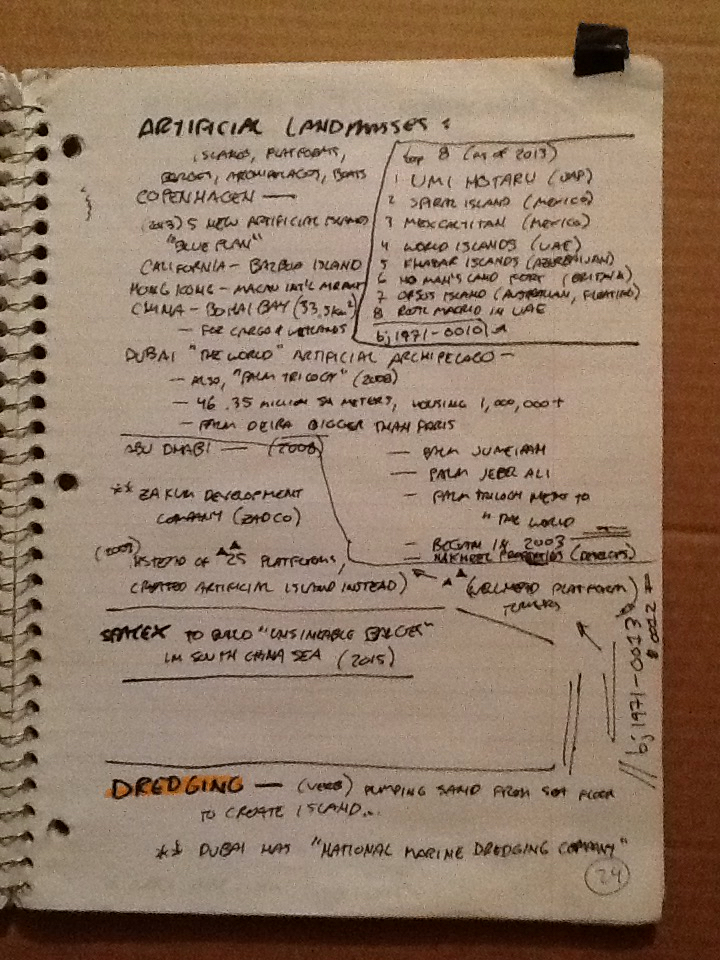 ARTIFICIAL LANDMASSES:
ISLANDS, PLATFORMS,
BARGES, ARCHIPELAGOS, BOATS
COPENHAGEN —
(2013) 5 NEW ARTIFICIAL ISLANDS
"BLUE PLAN"
CALIFORNIA - BALBOA ISLAND
HONG KONG - MACAU INT'L
CHINA - BOHAI BAY (33.5 km²)
- FOR CARGO & WETLANDS
top 8 (as of 2013)
1 UMI HOTARU (JAP)
2 SPIRAL ISLAND (MEXICO)
3 MEXCALTITAN (MEXICO)
4 WORLD ISLANDS (UAE)
5 KHAZAR ISLANDS (AZERBAIJAN)
6 NO MAN'S LAND FORT (BRITAIN)
7 ORSOS ISLAND (AUSTRALIAN, FLOATING)
8 IN UAE
bj1971-0010
DUBAI "THE WORLD" ARTIFICIAL ARCHIPELAGO —
- ALSO, "PALM TRILOGY" (2008)
- 46.35 MILLION SQ METERS, HOUSING 1,000,000+
- PALM DEIRA BIGGER THAN PARIS
— PALM JUMEIRAH
— PALM JEBEL ALI
— PALM TRILOGY NEXT TO
"THE WORLD
— BEGAN IN 2003
— NAKHEEL PROPERTIES (DEVELOPERS)
ABU DHABI — (2008)
** ZAKUM DEVELOPMENT
COMPANY (ZADCO)
(2009) INSTEAD OF ▲▲ 25 PLATFORMS,
CREATED ARTIFICIAL ISLAND INSTEAD)
▲▲ (WELLHEAD PLATFORM)
TOWERS
SPACEX TO BUILD "UNSINKABLE BARGES"
IN SOUTH CHINA SEA (2015)
// bj1971-0013
& 0022 #
DREDGING — (VERB) PUMPING SAND FROM SEA FLOOR
TO CREATE ISLAND...
** DUBAI HAS "NATIONAL MARINE DREDGING COMPANY"
24